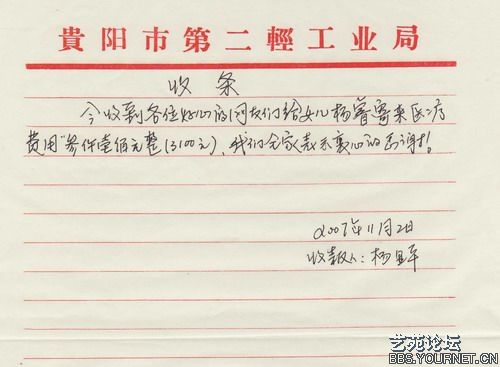 貴阳市第二輕工业局
收条
今收到各位好心的网友们给女儿杨睿 医疗
费用叁仟壹佰元整(3100元),我们全家表示衷心的感谢!
2007年11月2日
收款人:杨
艺苑论坛
BBS.YOURNET.CN